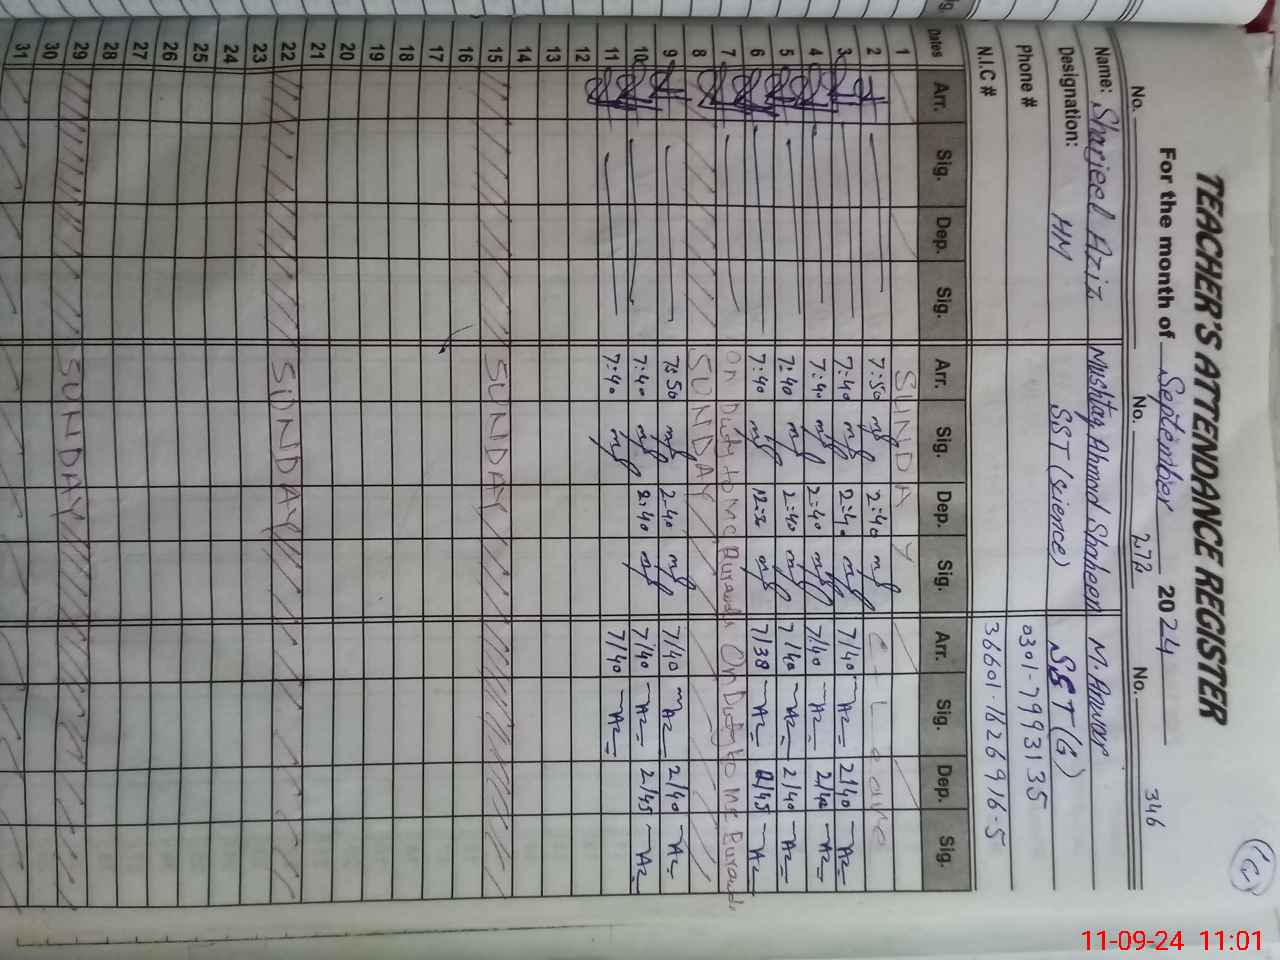 TEACHER'S ATTENDANCE REGISTER
For the month of September 2024
No. No. 272 No. 346
Name: Sharjeel Aziz Mushtaq Ahmad Shaheen M. Anwar
Designation: HM SST (science) SST (G)
Phone # 0301-7993135
N.I.C # 36601-1626916-5
Dates Arr. Sig. Dep. Sig. Arr. Sig. Dep. Sig. Arr. Sig. Dep. Sig.
1 SUNDAY
2 7:50 2:40 C-Leave
3 7:40 2:40 7/40 2/40
4 7:40 2:40 7/40 2/40
5 7:40 2:40 7/40 2/40
6 7:40 7/38
7 On Duty to MC On Duty to
8 SUNDAY
9 7:50 2:40 7/40 2/40
10 7:40 2:40 7/40 2/45
11 7:40 7/40
12
13
14
15 SUNDAY
16
17
18
19
20
21
22 SUNDAY
23
24
25
26
27
28
29 SUNDAY
30
31
11-09-24 11:01